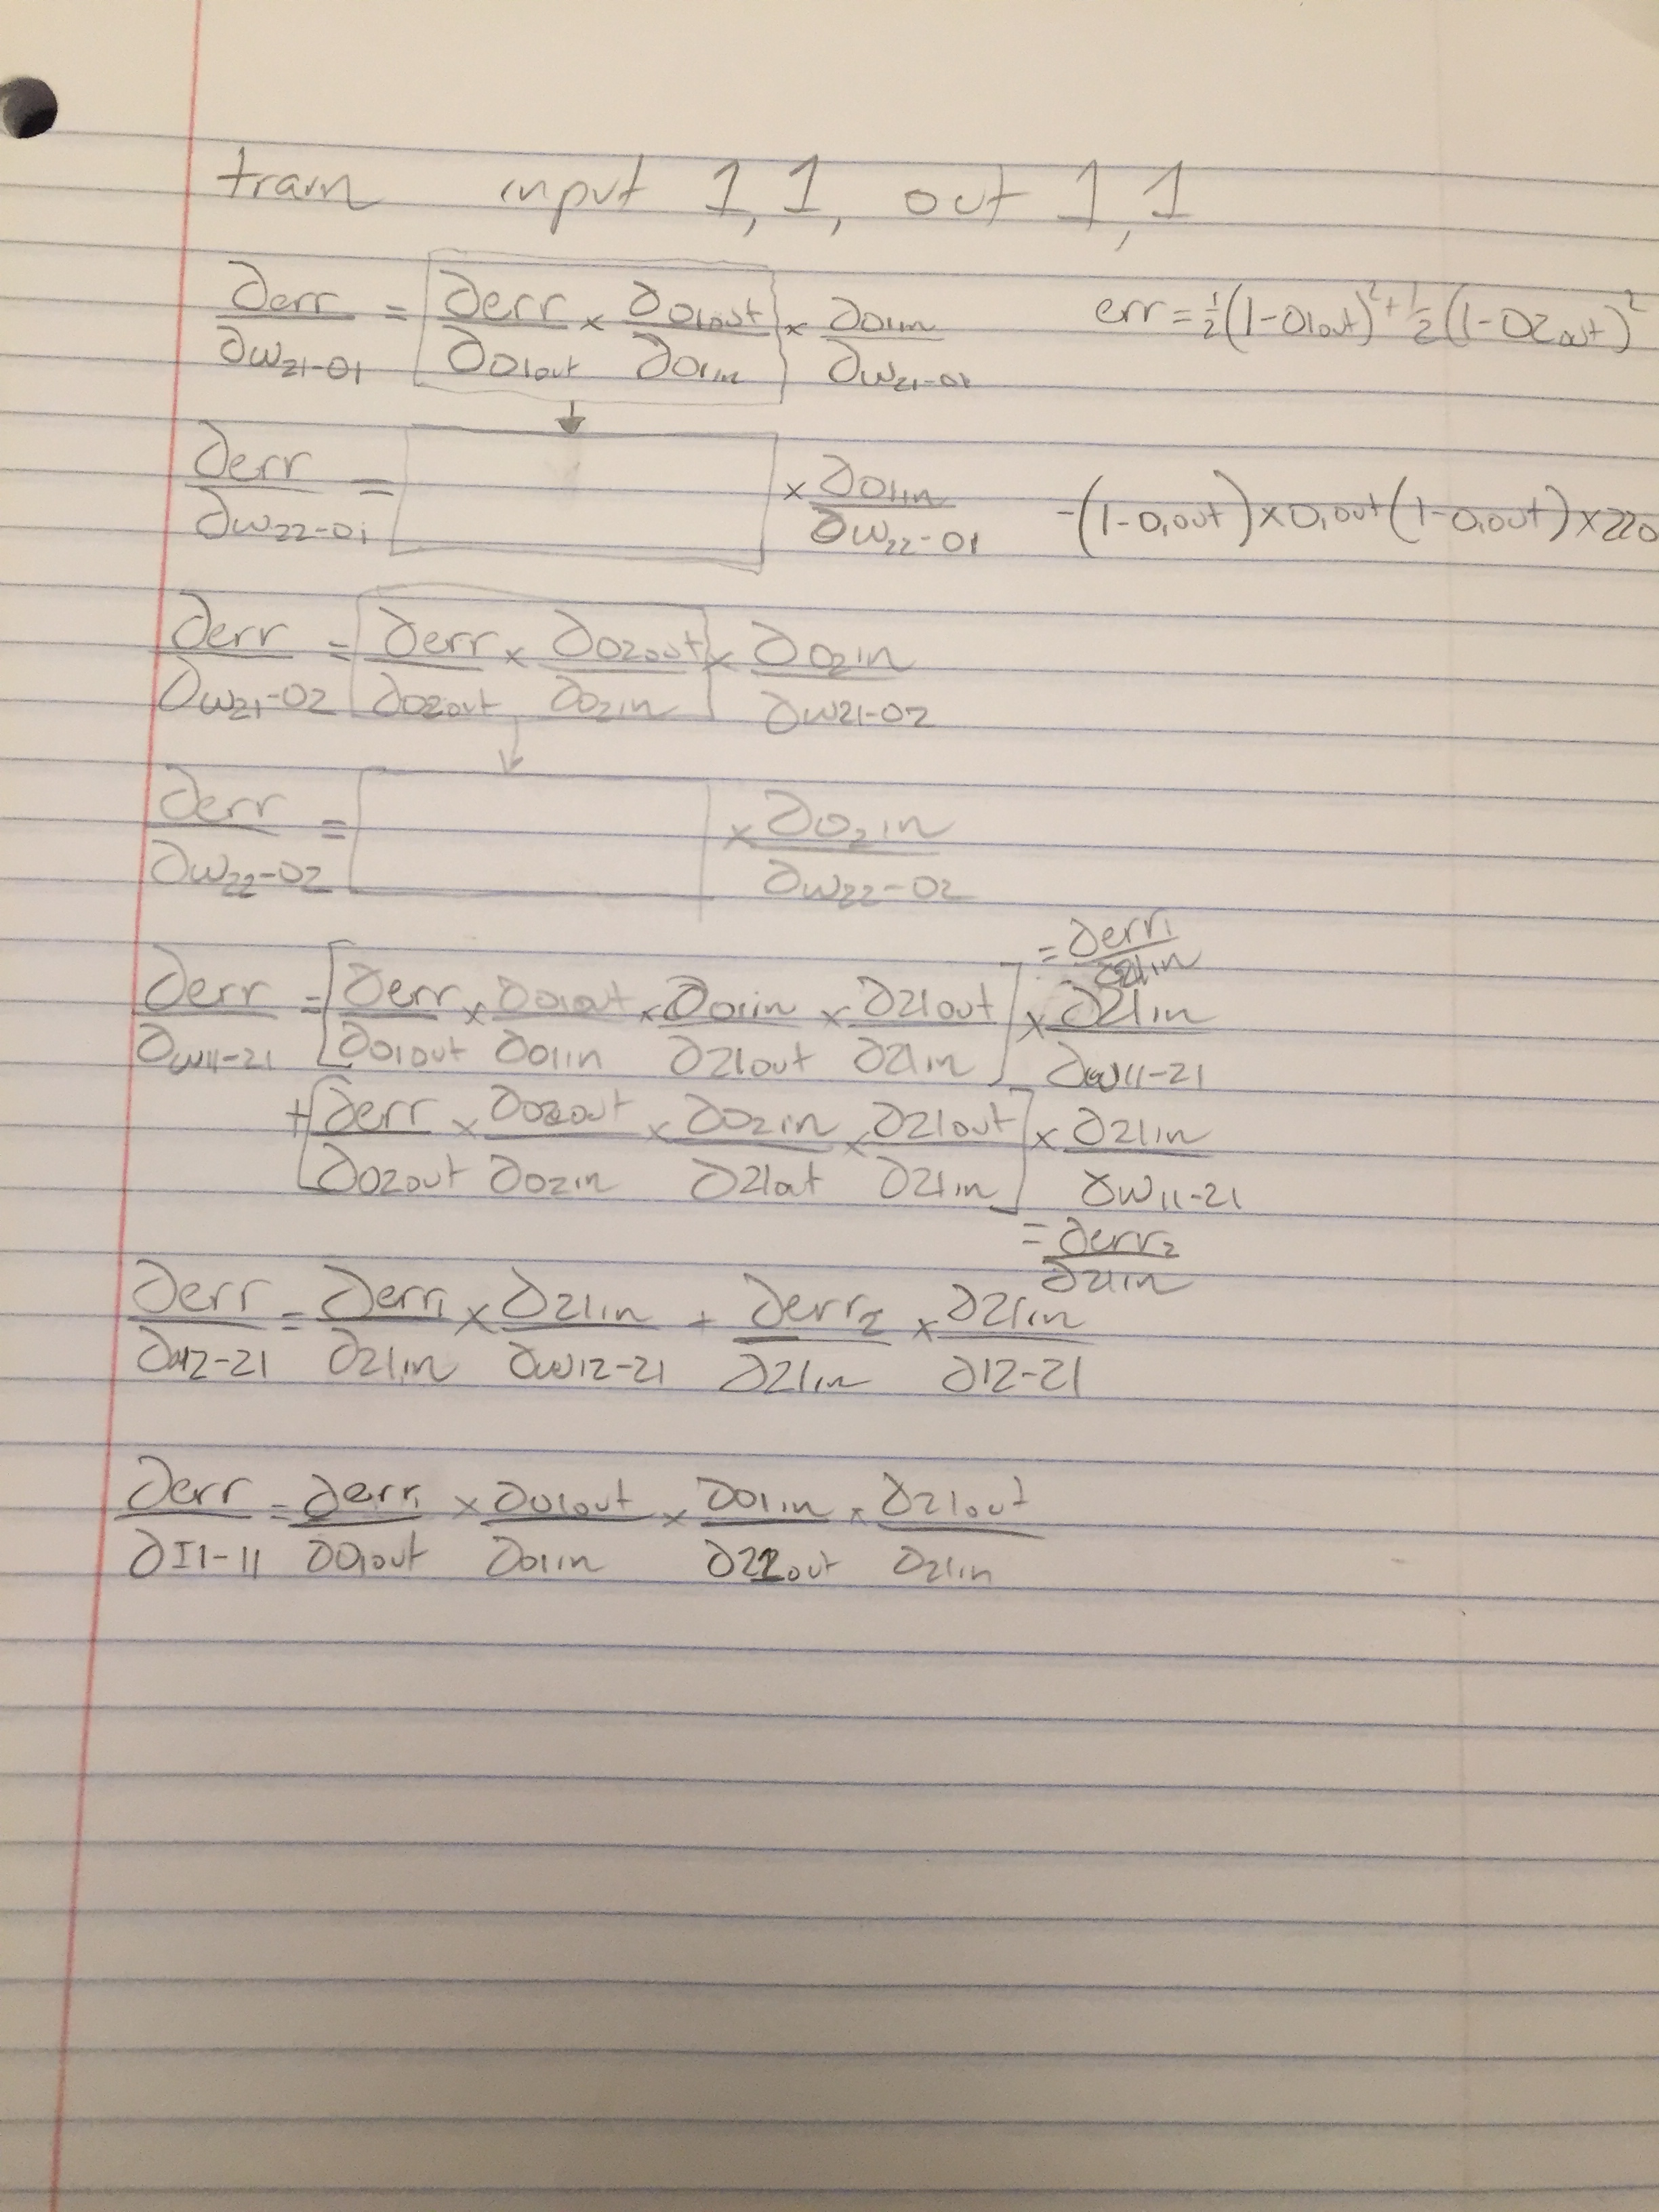 train input 1,1, out 1,1
∂err/∂w21-01 = [∂err/∂01out × ∂01out/∂01in] × ∂01in/∂w21-01 err = ½(1-01out)² + ½(1-02out)²
∂err/∂w22-01 = [ ] × ∂01in/∂w22-01 -(1-01out)×01out(1-01out)×220
∂err/∂w21-02 = [∂err/∂02out × ∂02out/∂02in] × ∂02in/∂w21-02
∂err/∂w22-02 = [ ] × ∂02in/∂w22-02
= ∂err1/∂21in
∂err/∂w11-21 = [∂err/∂01out × ∂01out/∂01in × ∂01in/∂21out × ∂21out/∂21in] × ∂21in/∂w11-21
+ [∂err/∂02out × ∂02out/∂02in × ∂02in/∂21out × ∂21out/∂21in] × ∂21in/∂w11-21
= ∂err2/∂21in
∂err/∂w12-21 = ∂err1/∂21in × ∂21in/∂w12-21 + ∂err2/∂21in × ∂21in/∂12-21
∂err/∂I1-11 = ∂err1/∂01out × ∂01out/∂01in × ∂01in/∂21out × ∂21out/∂21in